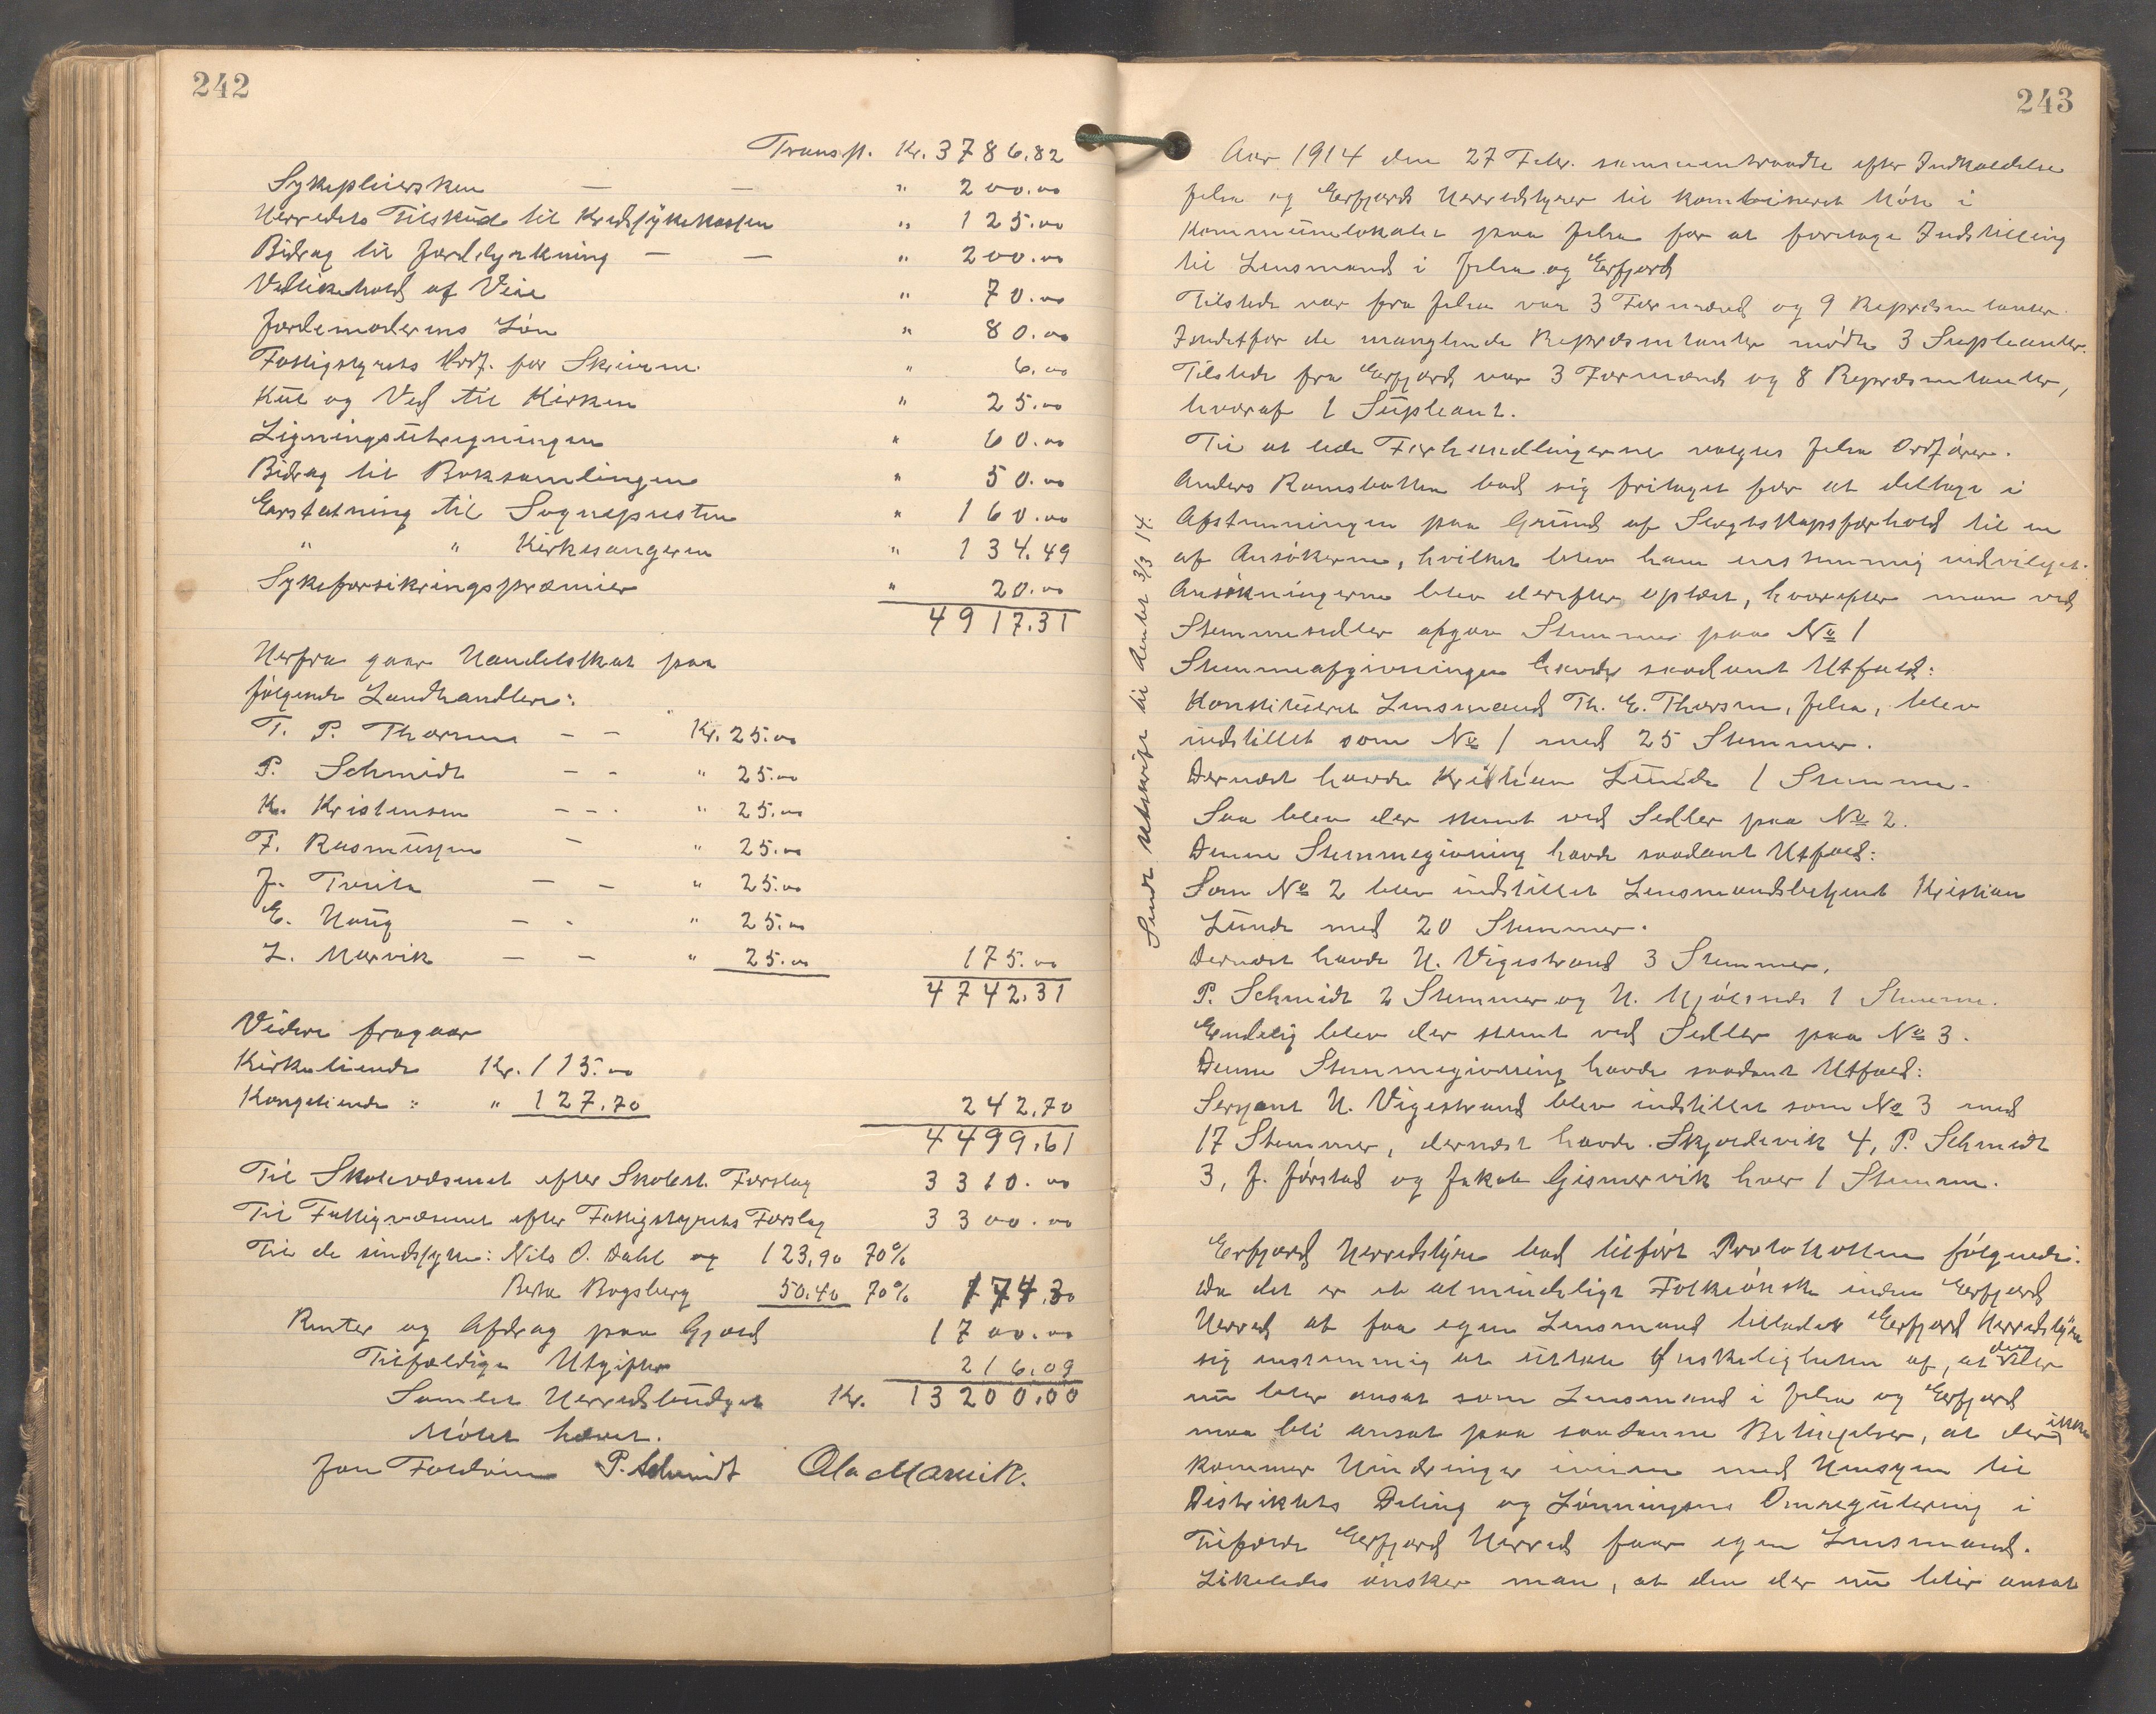 242
Transp. Kr. 3786,82
Sykepleiersken — — " 200.00
Herredets Tilskud til Kredssykekassen " 125.00
Bidrag til Jorddyrkning — — " 200.00
Vedlikehold af Veie " 70.00
Jordemoderens Løn " 80.00
Fattigstyrets Ordf. for Skrivm. " 6.00
Kul og Ved til Kirken " 25.00
Ligningsutregningen " 60.00
Bidrag til Boksamlingen " 50.00
Erstatning til Sognepresten " 160.00
" " Kirkesangeren " 134.49
Sykeforsikringspræmier " 20.00
4917.31
Herfra gaar Handelsskat paa
følgende Landhandlere:
T. P. Thorsen — — Kr. 25.00
P. Schmidt — - " 25.00
K. Kristensen — - - " 25.00
F. Rasmussen — " 25.00
J. Tveita — — " 25.00
E. Haug — - " 25.00
L. Marvik — — " 25.00 175.00
4742.31
Videre fragaar
Kirketiende Kr. 115.00
Kongetiende " " 127.70 242.70
4499.61
Til Skolevæsenet efter Skolest. Forslag 3310.00
Til Fattigvæsenet efter Fattigstyrets Forslag 3300.00
Til de sindssyke: Nils O. Dahl og 123,90 70%
Berta Bogsberg 50.40 70% 174.30
Renter og Afdrag paa Gjæld 1700.00
Tilfældige Utgifter 216.09
Samlet Herredsbudget Kr. 13200.00
Møtet hævet.
Jon Foldøen P. Schmidt Ola Marvik.
243
Aar 1914 den 27 Febr. sammentraadte efter Indkaldelse
Jelsa og Erfjord Herredstyrer til kombineret Møte i
Kommunelokalet paa Jelsa for at foretage Indstilling
til Lensmand i Jelsa og Erfjord
Tilstede var fra Jelsa var 3 Formænd og 9 Repræsentanter.
Istedetfor de manglende Repræsentanter mødte 3 Supleanter.
Tilstede fra Erfjord var 3 Formænd og 8 Repræsentanter,
hvoraf 1 Supleant.
Til at lede Forhandlingerne valgtes Jelsa Ordfører.
Anders Ramsbotten bad sig fritaget for at deltage i
Afstemningen paa Grund af Slegtskapsforhold til en
af Ansøkerne, hvilket blev ham enstemmig indvilget.
Ansøkningerne blev derefter oplæst, hvorefter man ved
Stemmesedler afgav Stemmer paa No 1
Stemmeafgivningen havde saadant Utfald:
Konstitueret Lensmand Th. E. Thorsen, Jelsa, blev
indstillet som No 1 med 25 Stemmer.
Dernæst havde Kristian Lunde 1 Stemme.
Saa blev der stemt ved Sedler paa No 2.
Denne Stemmegivning havde saadant Utfald:
Som No 2 blev indstillet Lensmandsbetjent Kristian
Lunde med 20 Stemmer.
Dernæst havde H. Vigestrand 3 Stemmer,
P. Schmidt 2 Stemmer og H. Hjølsnes 1 Stemme.
Endelig blev der stemt ved Sedler paa No 3.
Denne Stemmegivning havde saadant Utfald:
Sersjant H. Vigestrand blev indstillet som No 3 med
17 Stemmer, dernæst havde Skjoldevik 4, P. Schmidt
3, J. Jørstad og Jakob Gismervik hver 1 Stemme.
Erfjord Herredstyre bad tilført Protokollen følgende:
Da det er et almindeligt Folkeønske inden Erfjord
Herred at faa egen Lensmand tillader Erfjord Herredstyre
sig enstemmig at uttale Ønskeligheten af, at den der
nu blir ansat som Lensmand i Jelsa og Erfjord
maa bli ansat paa saadanne Betingelser, at der ikke
kommer Hindringer iveien med Hensyn til
Distriktets Deling og Lønningens Omregulering i
Tilfælde Erfjord Herred faar egen Lensmand.
Likeledes ønsker man, at den der nu blir ansat
Sendt Utskrift til Amtet 3/3 14.